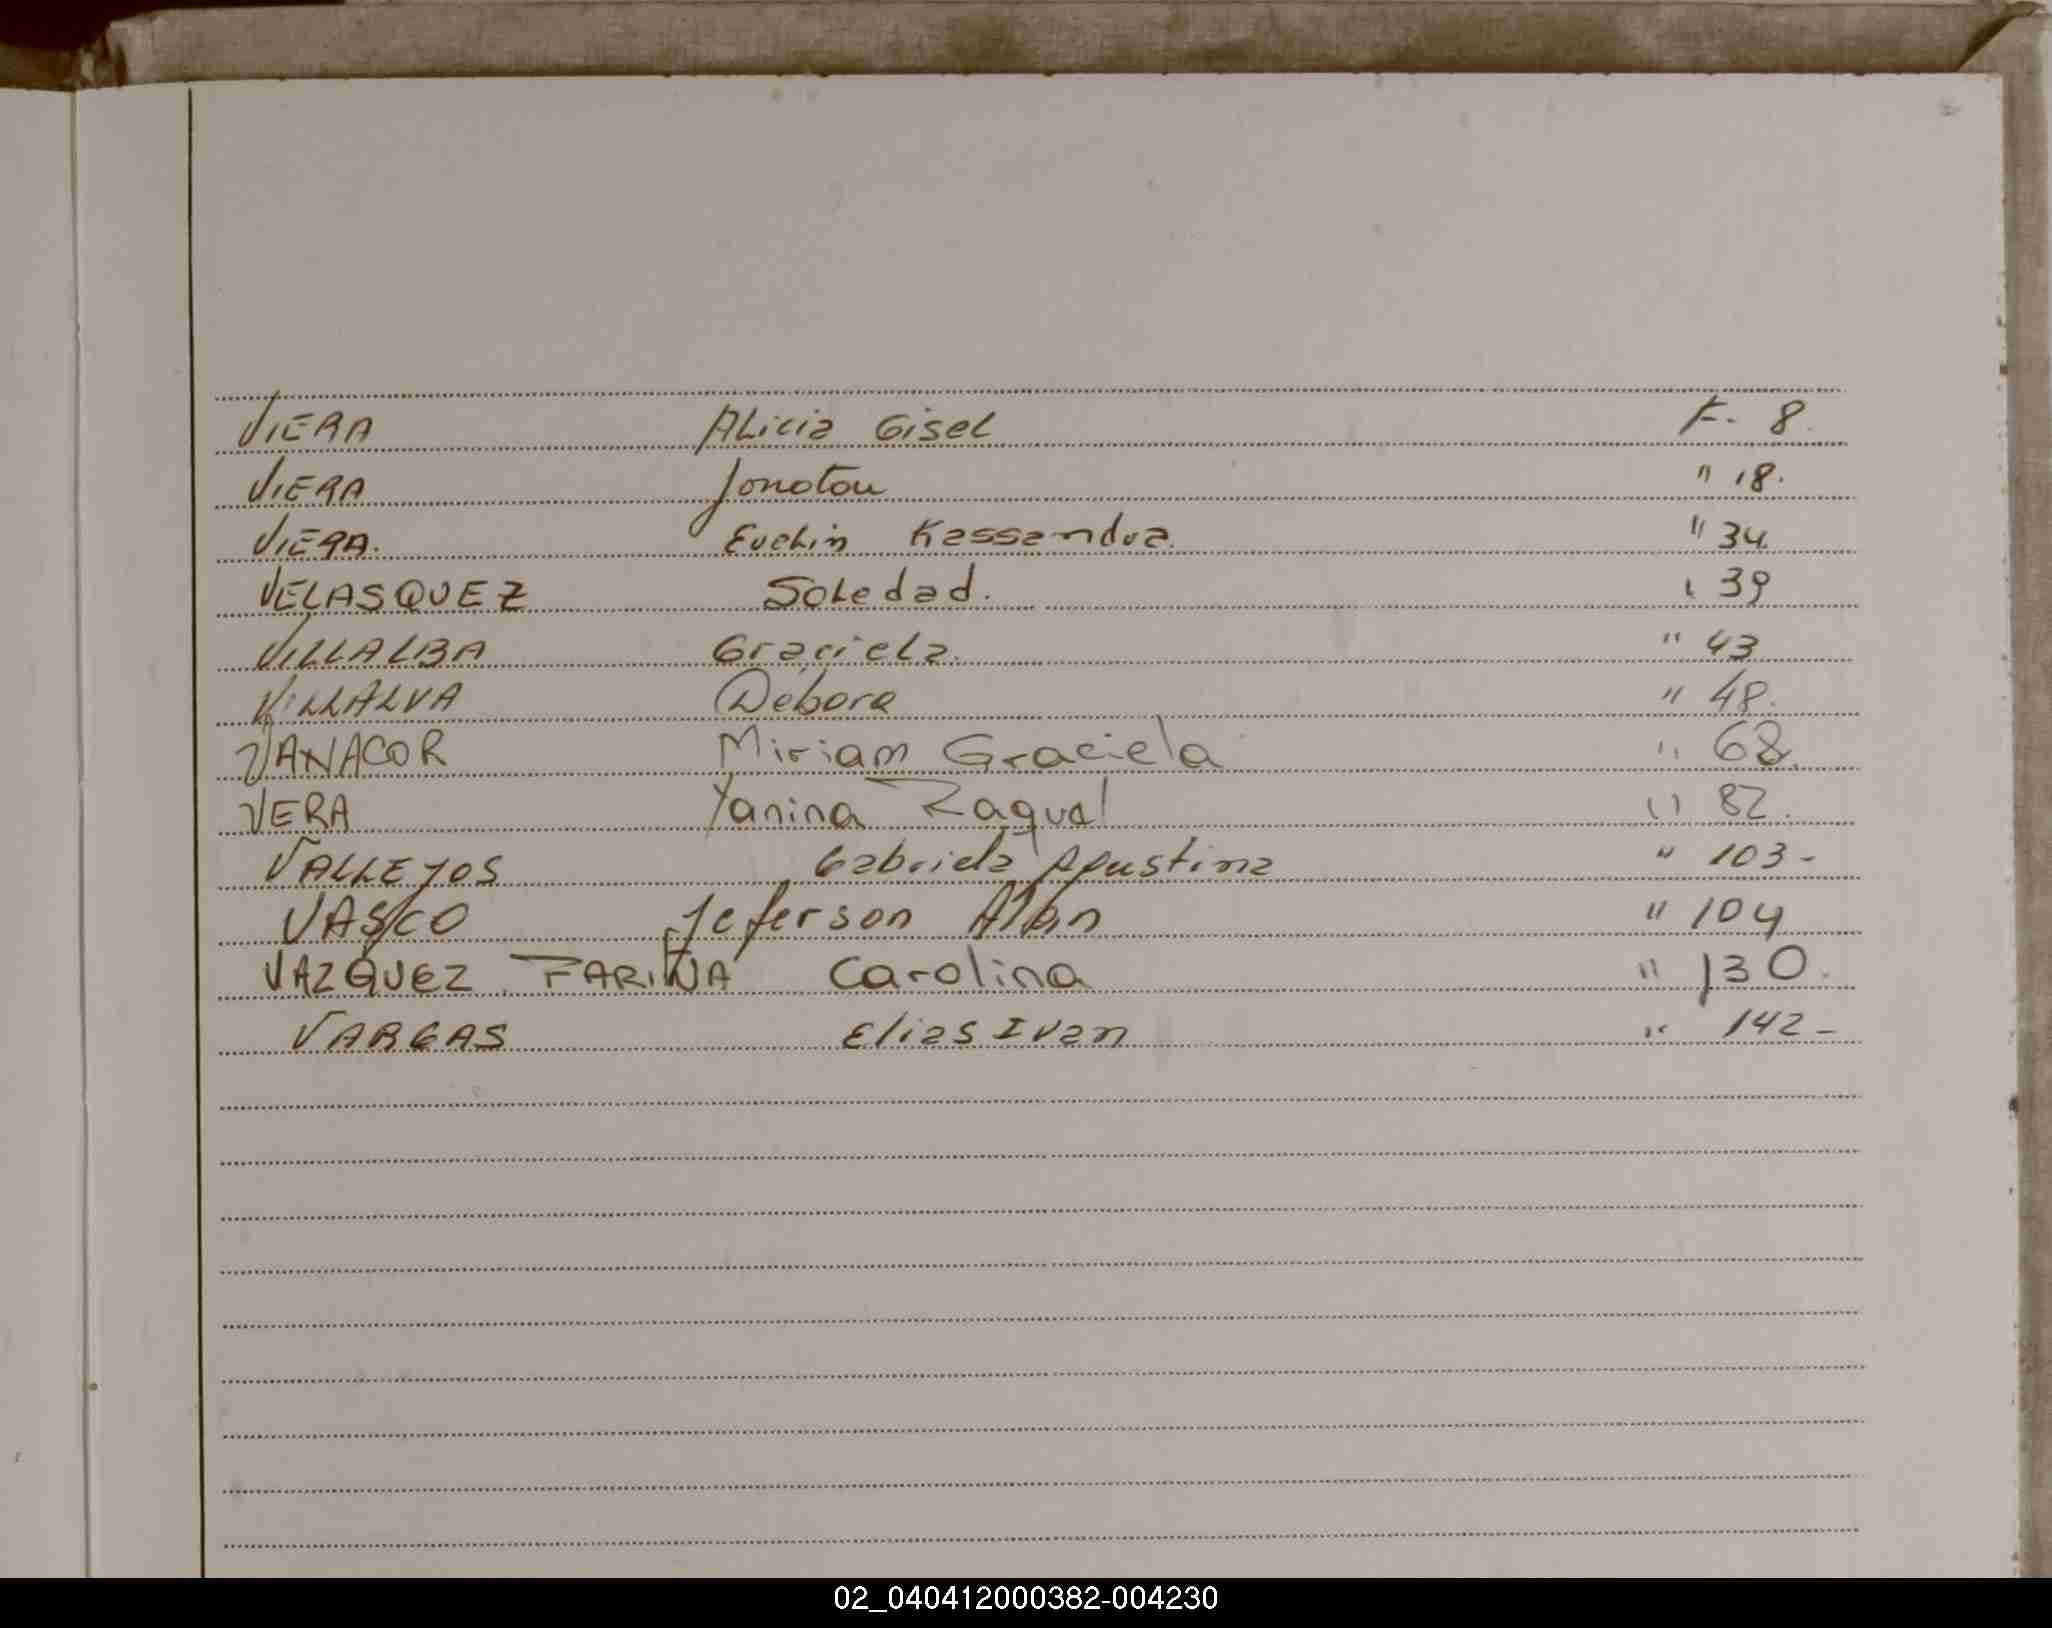 VIERA Alicia Gisel F. 8.
VIERA Jonatan " 18.
VIERA. Evelin Kassandra. " 34.
VELASQUEZ Soledad. " 39
VILLALBA Graciela. " 43
VILLALVA Débora " 48.
VANACOR Miriam Graciela " 68.
VERA Yanina Raquel " 82.
VALLEJOS Gabriela Agustina " 103-
VASCO Jeferson Alan " 104
VAZQUEZ FARIÑA Carolina " 130.
VARGAS Elias Ivan " 142-
02_040412000382-004230